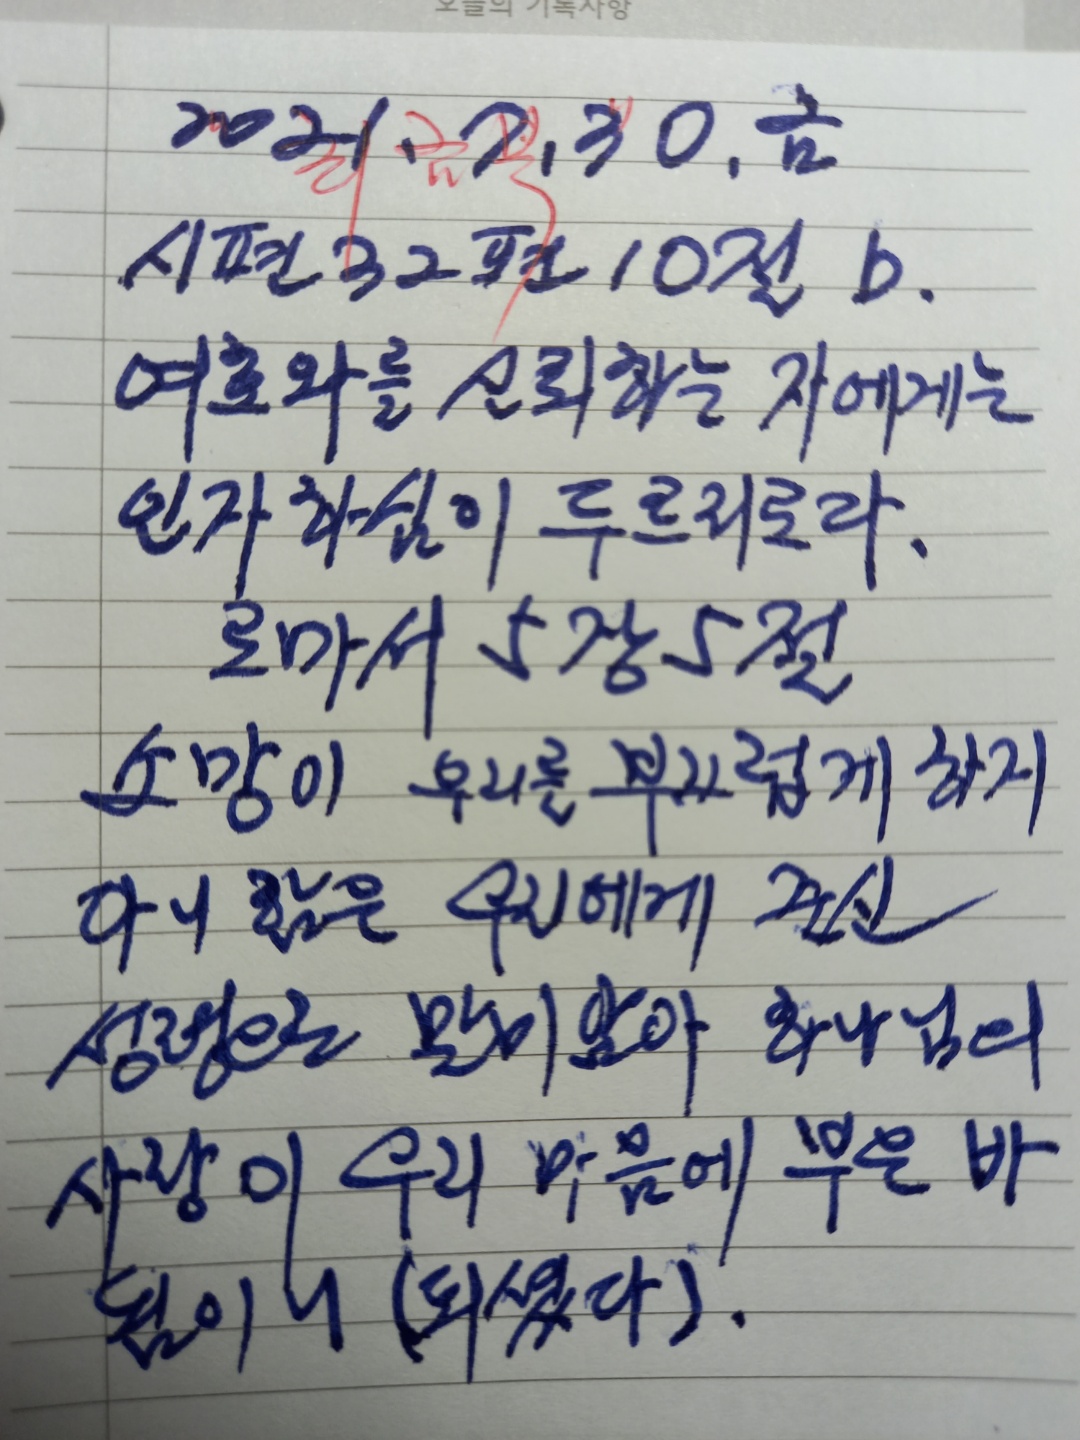 오늘의 기록사항
2021. 7. 30. 금
시편 32편 10절 b.
여호와를 신뢰하는 자에게는
인자하심이 두르리로다.
로마서 5장 5절
소망이 우리를 부끄럽게 하지
아니 함은 우리에게 주신
성령으로 말미암아 하나님의
사랑이 우리 마음에 부은 바
됨이니 (되셨다).